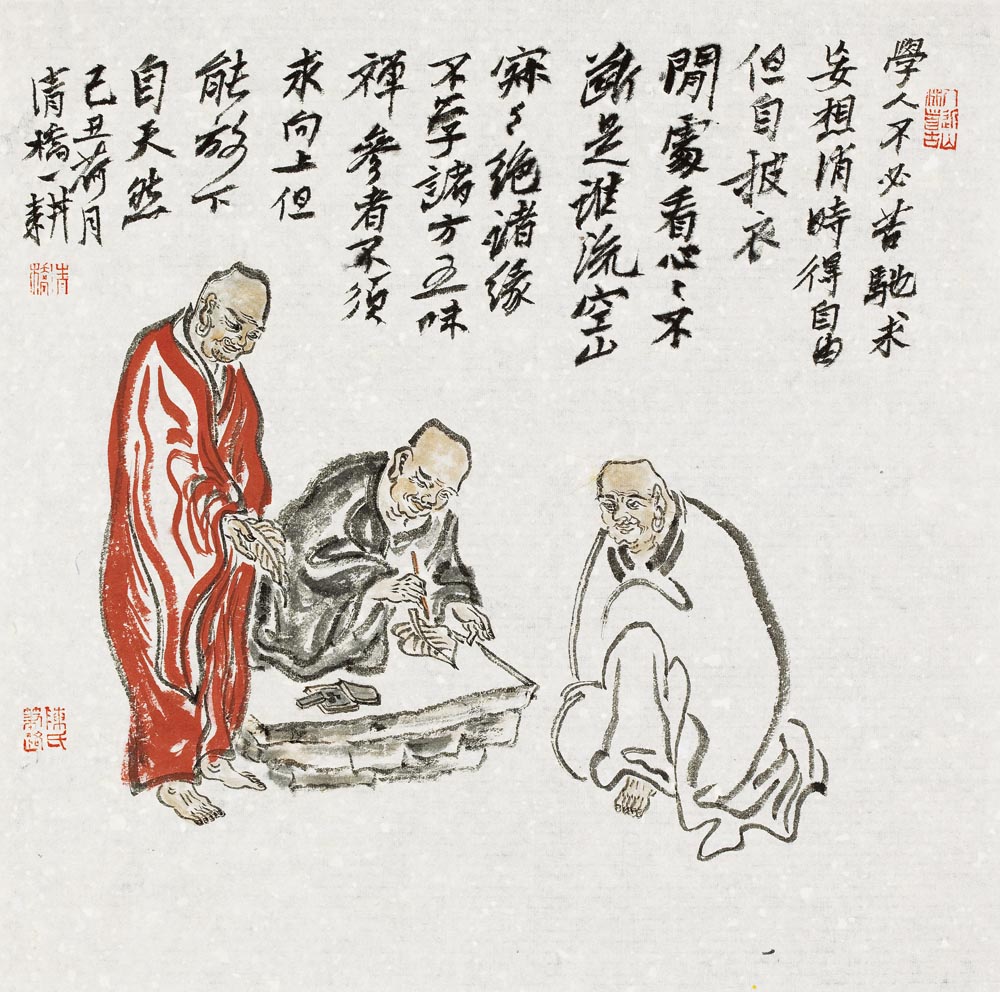 學人不必苦馳求
妄想消時得自由
但自披衣
閒處看心々不
斷是誰流空山
寂々絕諸緣
不學諸方五味
禪參者不須
求向上但
能放下
自天然
己丑荷月
清橋一耕
清橋
陳氏